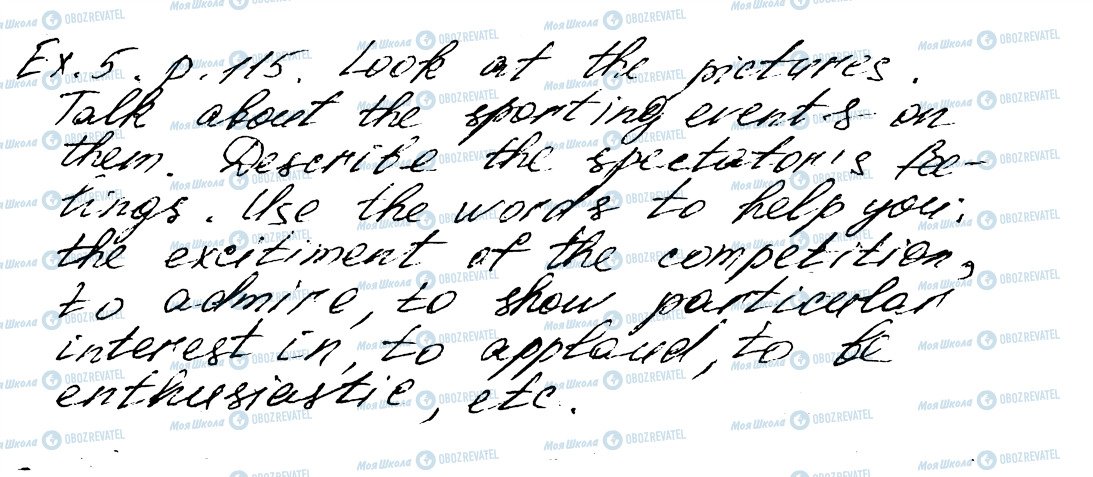 Ex. 5. p. 115. Look at the pictures.
Talk about the sporting events on
them. Describe the spectator's fee-
tings. Use the words to help you:
the excitiment of the competition,
to admire, to show particular
interest in, to applaud, to be
enthusiastic, etc.